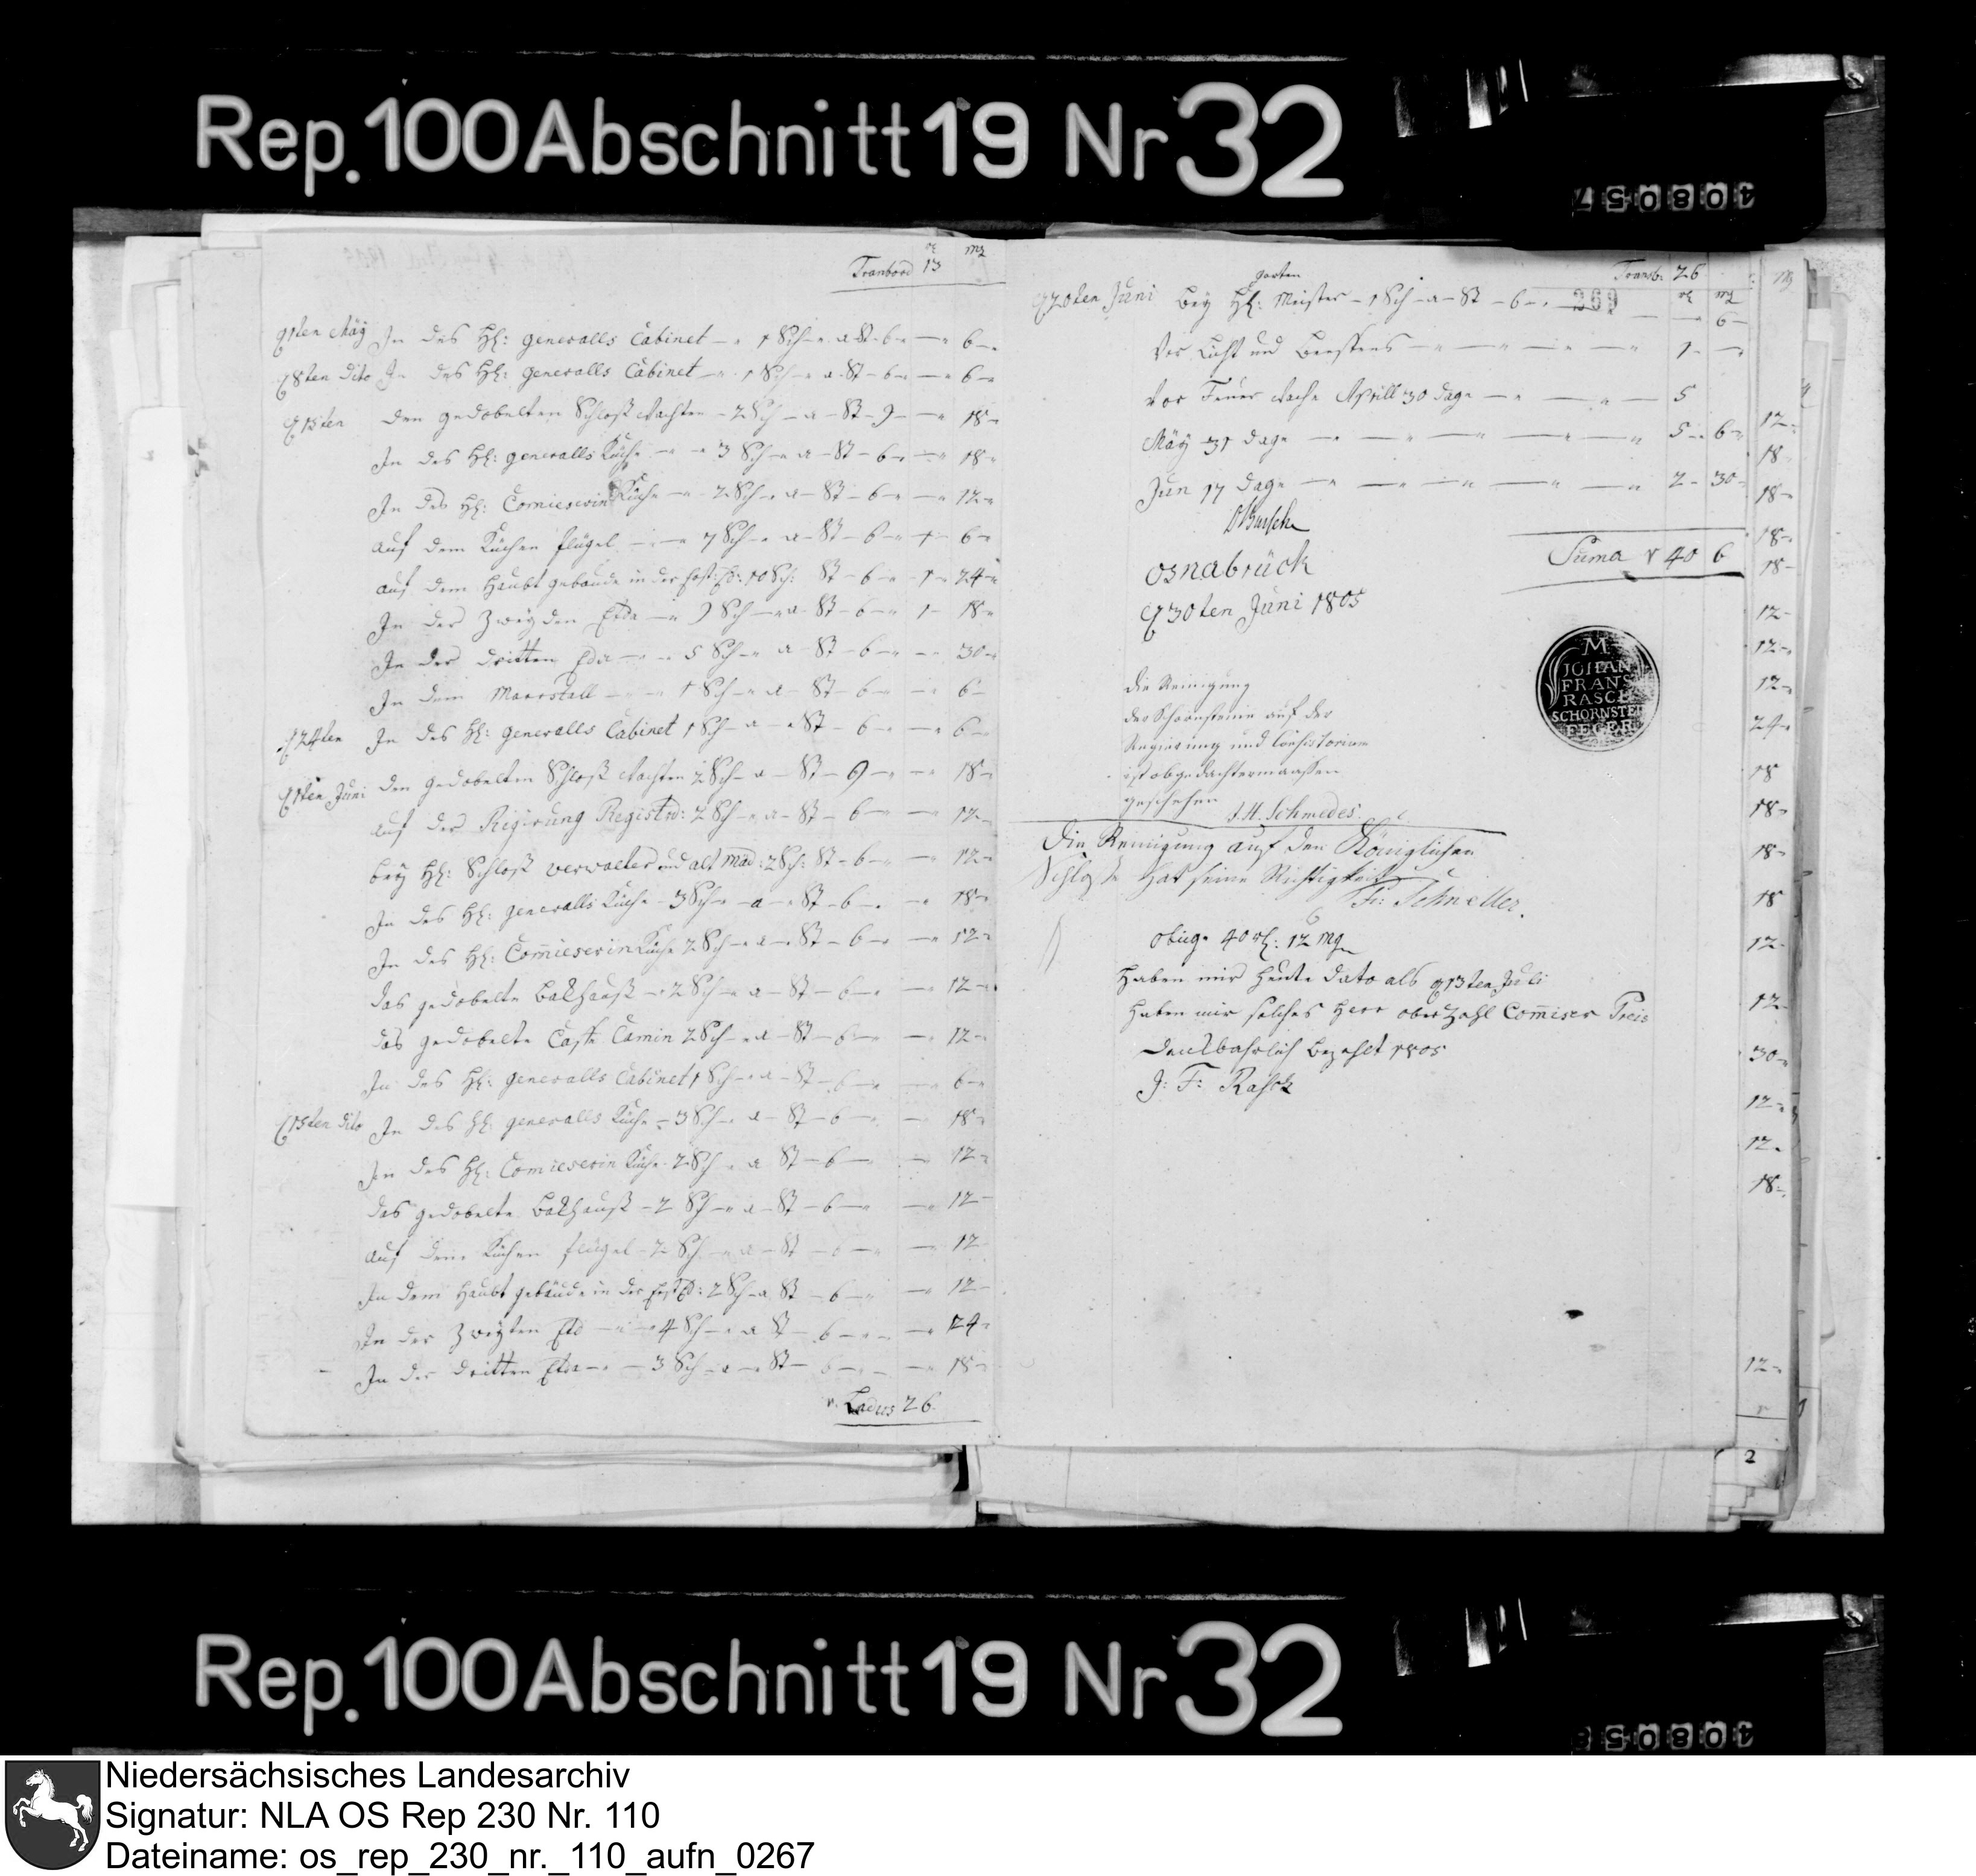 Rep. 100 Abschnitt 19 Nr 32
408057
Tranbord 13
rt mg
d 1ten Mäÿ In des Hh: generalls Cabinet 1 Sch a St 6 6
d 8ten dito In des Hh: generalls Cabinet 1 Sch a St 6 6
d 15ten den gedobelten Schloß Nachten 2 Sch a St 9 18
In des Hh: generalls Küche 3 Sch a St 6 18
In des Hh: Comieserin Küche 2 Sch a St 6 12
auf dem Küchen flügel 7 Sch a St 6 1 6
auf dem Haubt gebäude in der Erst: Ed: 10 Sch: St 6 1 24
In der Zweÿden Etda 9 Sch a St 6 1 18
In der dritten Eda 5 Sch a St 6 30
In dem Marrstall 1 Sch a St 6 6
d 24ten In des Hh: generalls Cabinet 1 Sch a St 6 6
d 1ten Juni den gedobelten Schloß Nachten 2 Sch a St 9 18
auf der Regirung Registrd: 2 Sch a St 6 12
beÿ Hh: Schloß verwalter und alt Mäd: 2 Sch: St 6 12
In des Hh: generalls Küche 3 Sch a St 6 18
In des Hh: Com̅ieserin Küche 2 Sch a St 6 12
das gedobelte Bakhauß 2 Sch a St 6 12
das gedobelte Caffe Camin 2 Sch a St 6 12
In des Hh: generalls Cabinet 1 Sch a St 6 6
d 15ten dito In des Hh: generalls Küche 3 Sch a St 6 18
In des Hh: Comieserin Küche 2 Sch a St 6 12
das gedobelte Bakhauß 2 Sch a St 6 12
auf dem Küchen flügel 2 Sch a St 6 12
In dem Haubt gebäude in der Erst Ed: 2 Sch a St 6 12
In der Zweÿten Etd 4 Sch a St 6 24
In der dritten Etda 3 Sch a St 6 18
Ladus 26
Transb: 26
269
rt mg
garten
d 20ten Juni Beÿ Hh: Meister 1 Sch a St 6 6
Vor Licht und Beestens 1
Vor Feuer Nache Aprill 30 dage 5
Mäÿ 31 dage 5 6
Jun 17 dage 2 30
DBusche
Suma 40 6
Osnabrück
d 30ten Juni 1805
M
JOHAN
FRANS
RASCH
SCHORNSTEI
FEGER
die Reinigung
der Schornsteine auf der
Regierung und Consistorium
ist obgedachtermaassen
geschehen J. H. Schmedes.
Die Reinigung auf den Königlichen
Schlosse hat seine Richtigkeit
Fr: Schneller.
obige 40 rh: 12 mg
Haben mir heute dato als d 13ten Juli
haben mir solches Herr ober Zahl Com̅iser Preis
danckbahrlich bezahlt 1805
J: F: Rasch
12
18
18
18
18
12
12
12
24
18
18
18
18
12
12
30
12
12
18
12
2
Rep. 100 Abschnitt 19 Nr 32
408058
Niedersächsisches Landesarchiv
Signatur: NLA OS Rep 230 Nr. 110
Dateiname: os_rep_230_nr._110_aufn_0267